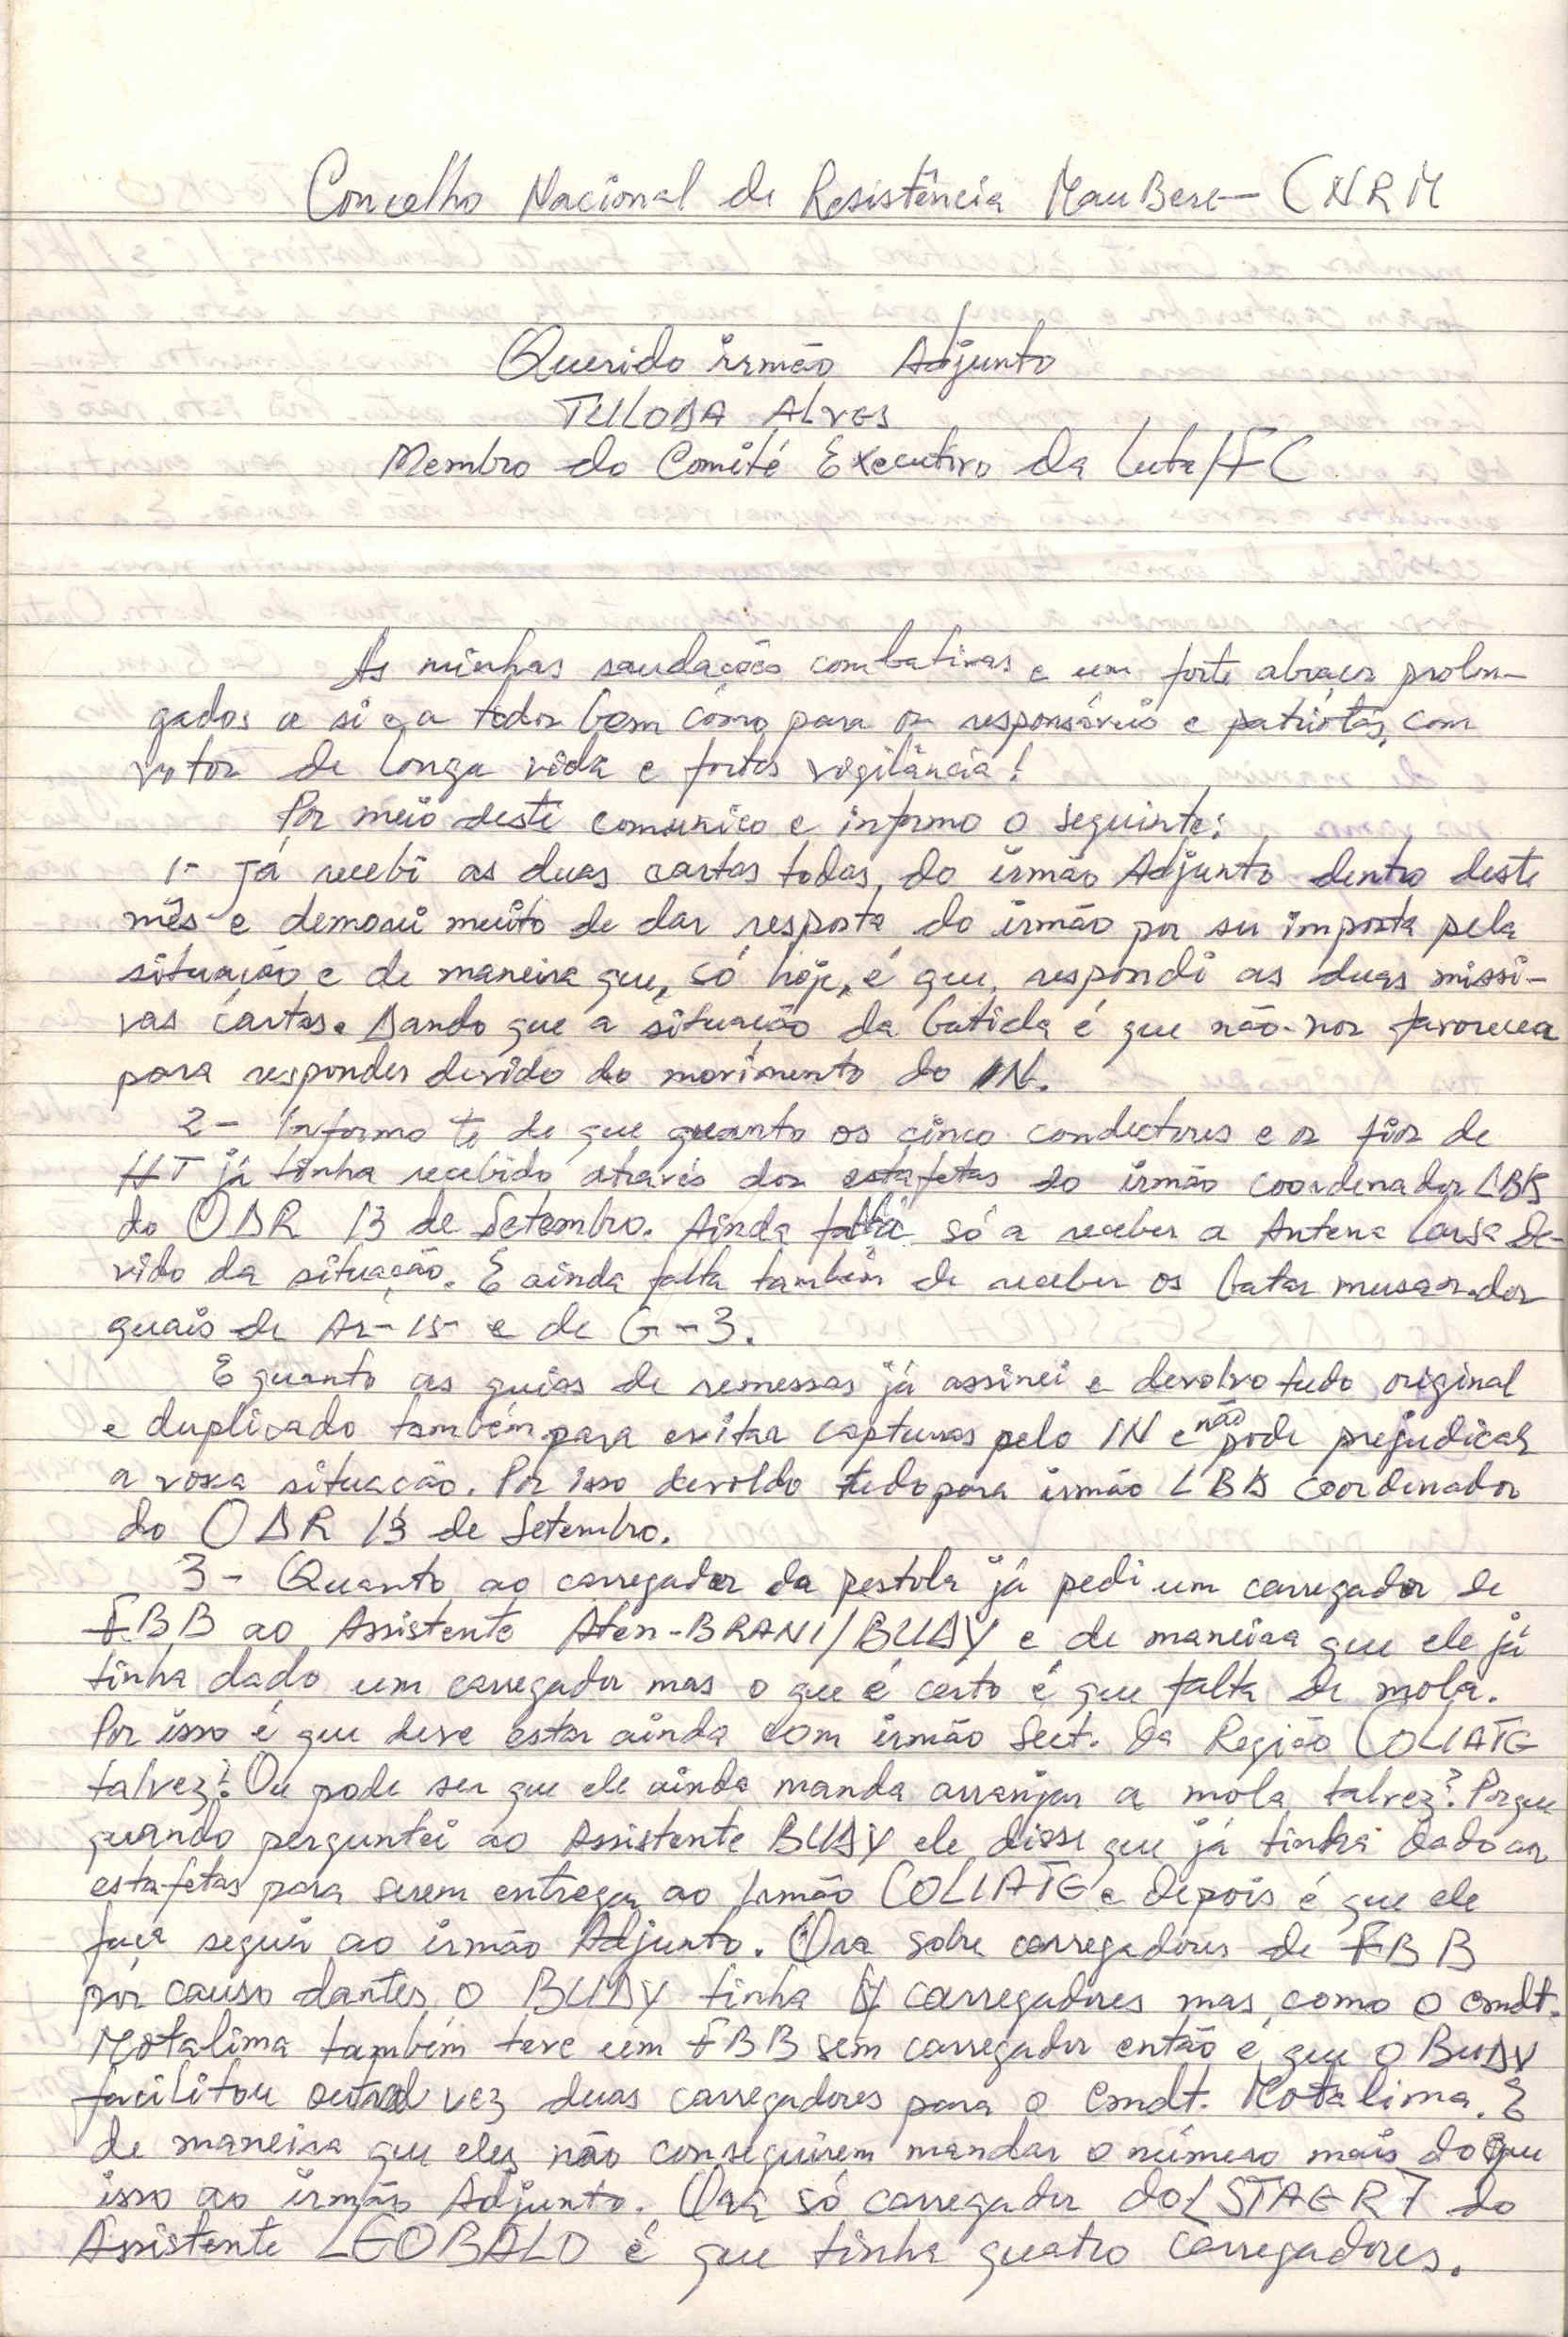 Concelho Nacional de Resistência MauBere - CNRM
Querido irmão Adjunto
TULODA ALVES
Membro do Comité Executivo da Luta/FC
As minhas saudações combativas e um forte abraços prolon-
gados a si e a todos bem como para os responsáveis e patriotas, com
votos de longa vida e fortes vigilância!
Por meio deste comunico e informo o seguinte:
1- Já recebi as duas cartas todas, do irmão Adjunto dentro deste
mês e demorei muito de dar resposta do irmão por ser imposta pela
situação e de maneira que, só hoje, é que, respondi as duas missi-
vas cartas. Dando que a situação da batida é que não nos favoreceu
para responder devido do movimento do IN.
2- Informo te de que quanto os cinco condectores e os fios de
HT já tinha recebido através dos estafetas do irmão coordenador LBK
do ODR 13 de Setembro. Ainda falta só a receber a Antena larga de-
vido da situação. E ainda falta também de receber os batas musan dos
quais de Ar-15 e de G-3.
E quanto as guias de remessas já assinei e devolvo tudo original
e duplicado também para evitar capturas pelo IN e não pode prejudicar
a vossa situação. Por isso devoldo tudo para irmão LBK coordenador
do ODR 13 de Setembro.
3- Quanto ao carregador da pestola já pedi um carregador de
FBB ao Assistente Aten-BRANI/BUDY e de maneira que ele já
tinha dado um carregador mas o que é certo é que falta de mola.
Por isso é que deve estar ainda com irmão Sect. da Região COLIATE
talvez? Ou pode ser que ele ainda manda arranjar a mola talvez? Porque
quando perguntei ao Assistente BUDY ele disse que já tinha dado aos
estafetas para serem entregar ao Irmão COLIATE e depois é que ele
faça seguir ao irmão Adjunto. Ora sobre carregadores de FBB
por causo dantes o BUDY tinha carregadores mas como o cmdt.
Motalima também teve um FBB sem carregador então é que o BUDY
facilitou outra vez duas carregadores para o Cmdt. Motalima. E
de maneira que eles não conseguirem mandar o número mais do que
isso ao irmão Adjunto. Ora só carregador do LSTAER 7 do
Assistente LEOBALD é que tinha quatro carregadores.